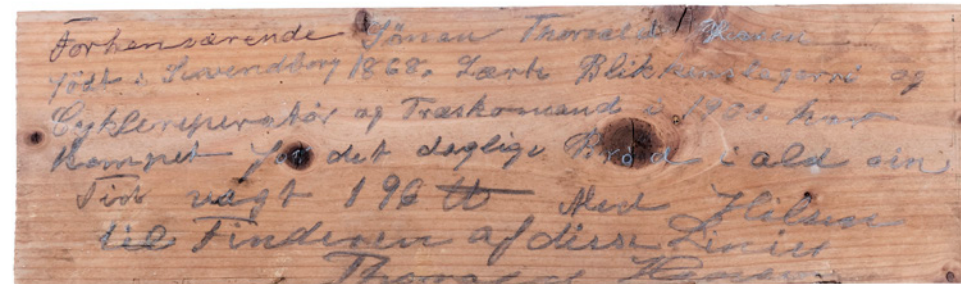 Forhenværende Sömen Thorvald Hansen
født i Svendborg 1868. Lærte Blikkenslageri og
Cyklereperatør og Træskomand i 1900. har
kæmpet for det daglige Brød i ald sin
Tid vægt 196 ℔ Med Hilsen
til Finderen af disse Linier
Thorvald Hansen